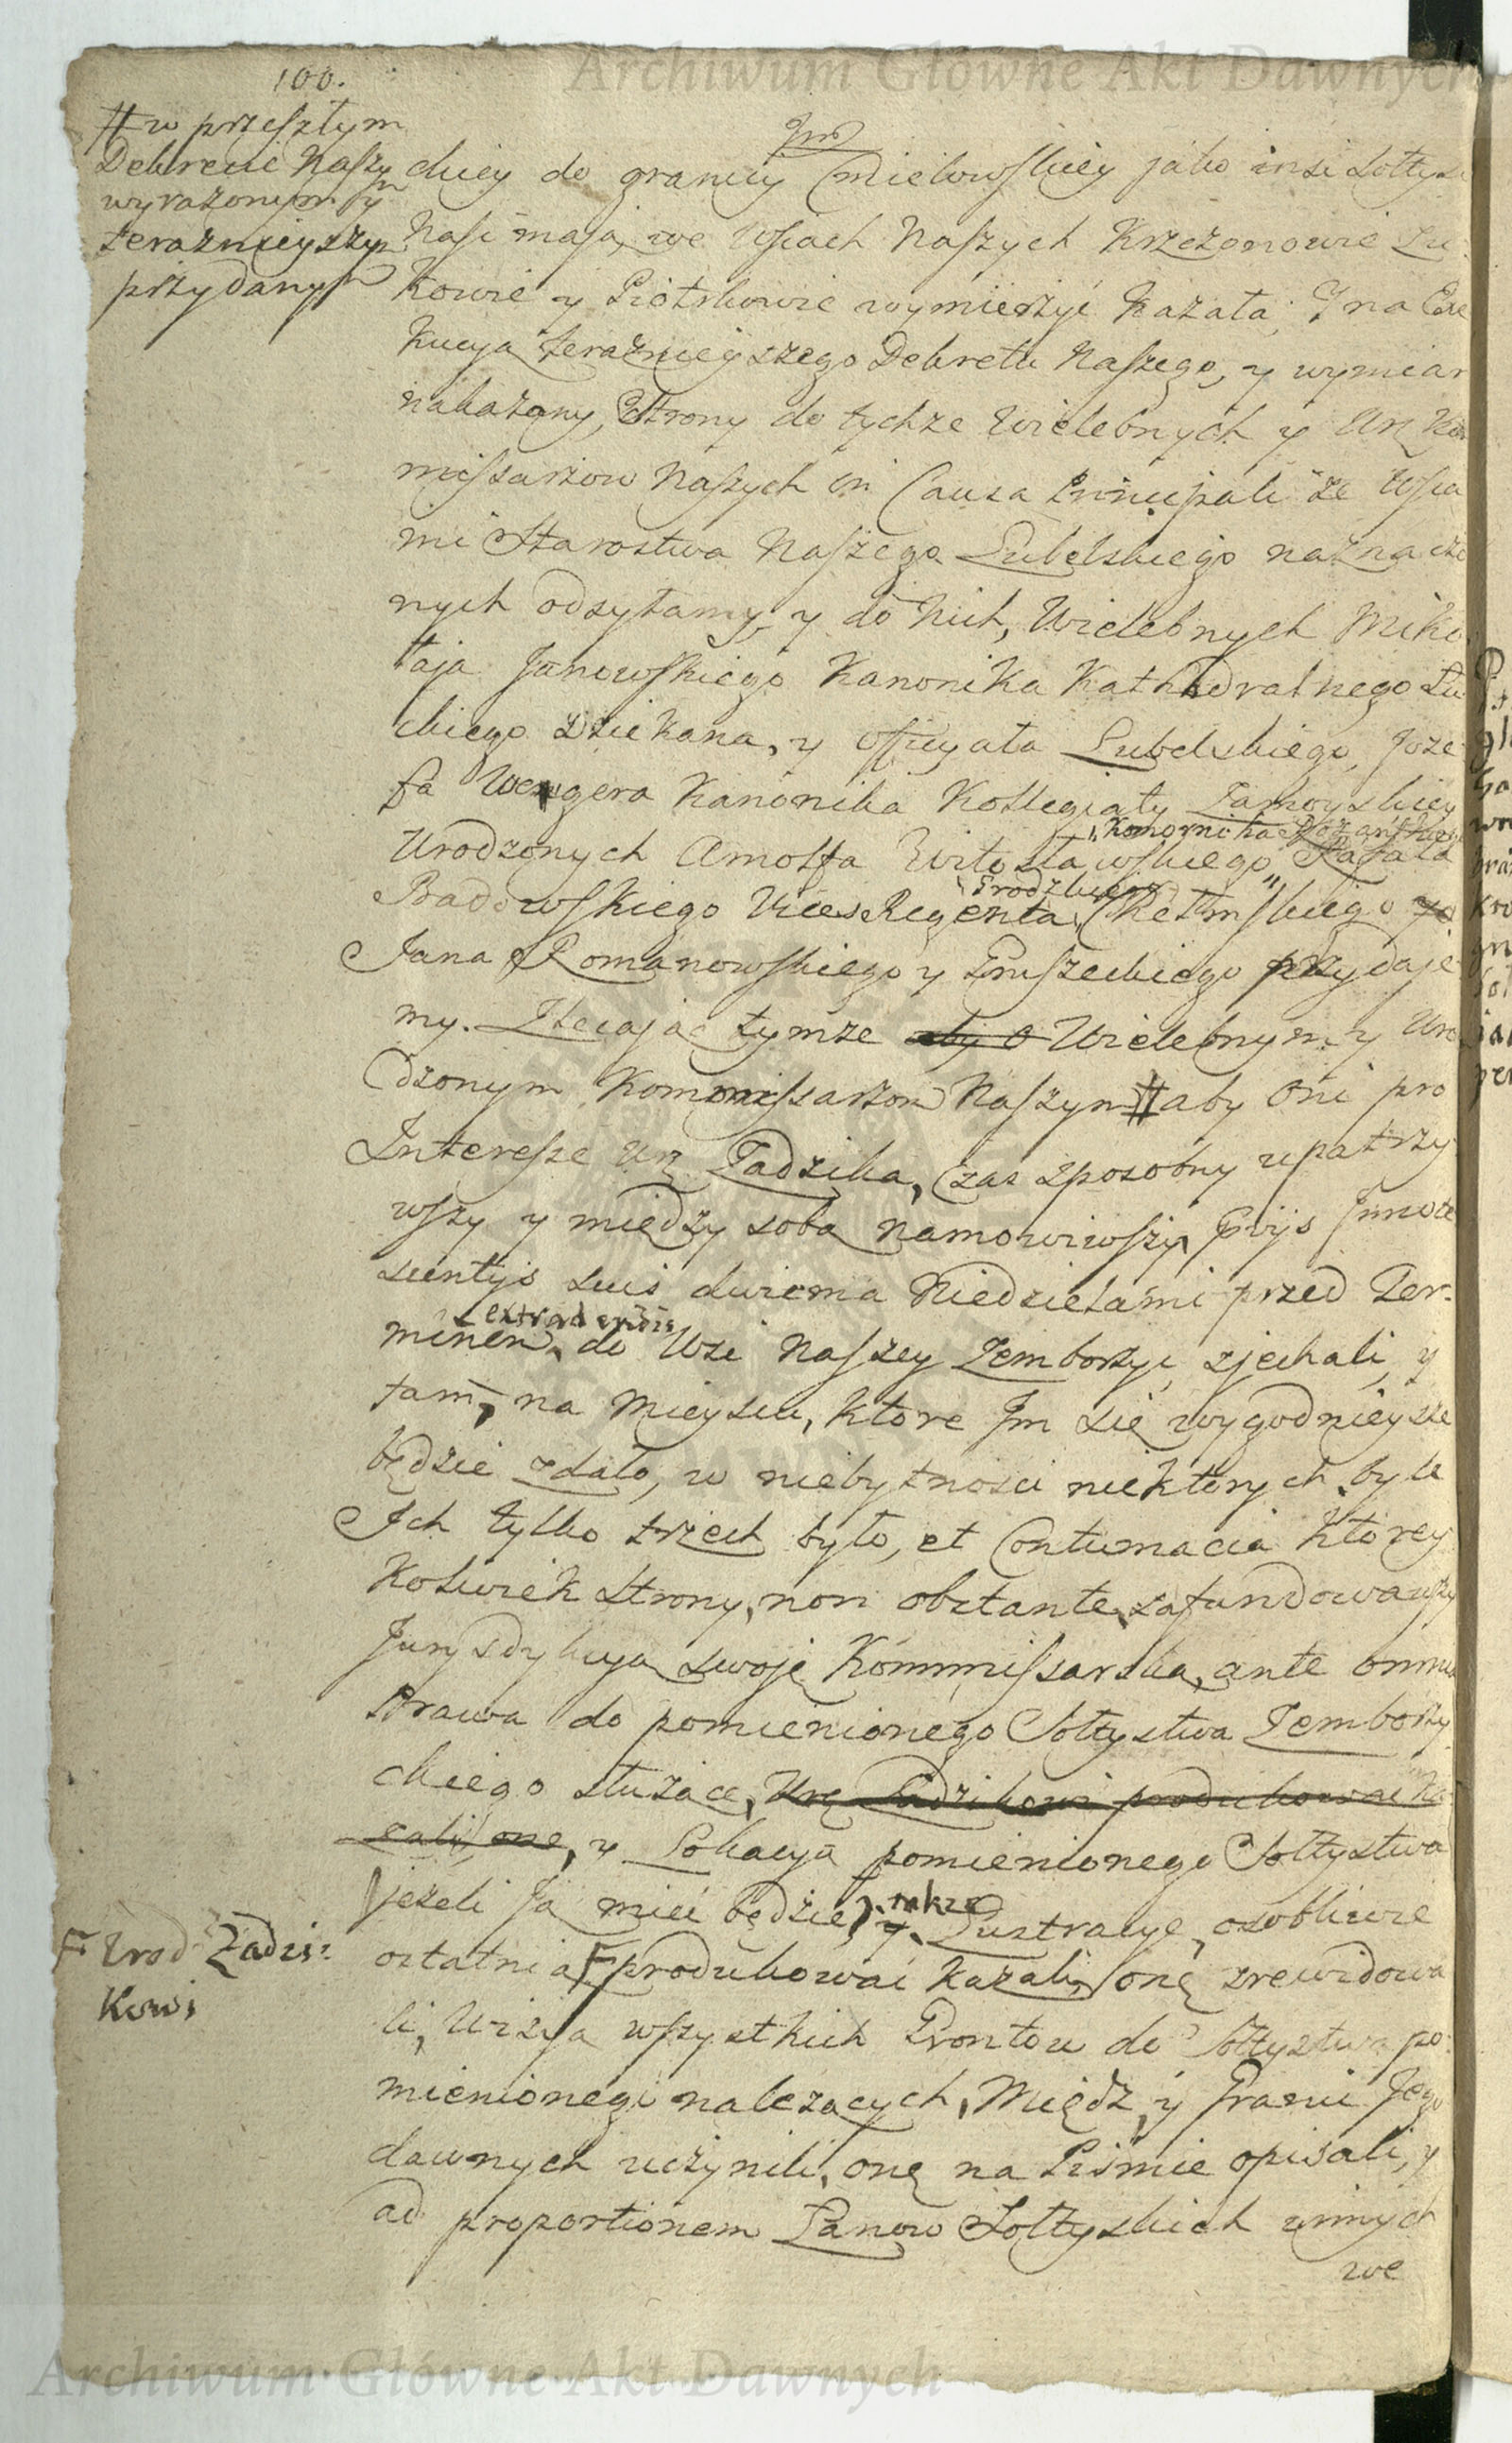 Archiwum Główne Akt Dawnych
100.
# w przeszłym
Dekrecie Naszy
wyrażonym y
teraznieyszym
przydanym
ckiey do granicy Cmielowskiey jako insi Sołtysi
Nasi mają, we Wsiach Naszych Krzczonowie Zu
kowie y Piotrkowie wymierzyć kazała; Y na Exe
kucyą teraznieyszego Dekretu Naszego, y wymiar
nakazany, Strony do tychze Wielebnych y Ur: Kom
missarzow Naszych in Causa Principali ze Wsia
mi Starostwa Naszego Lubelskiego naznaczo
nych odsyłamy y do Nich, Wielebnych Miko
łaja Janowskiego Kanonika Kathedralnego Łu
ckiego Dziekana, y officyała Lubelskiego, Joze
fa Wengera Kanonika Kollegiaty Zamoyskiey
Komornika
Urodzonych Arnolfa Witosławskiego, Rafała
Grodzkiego
Badowskiego Vices Regenta Chełmskiego
Jana Romanowskiego y Pruszeckiego przydaje
my. Zlecając tymze aby o Wielebnym y Uro
dzonym Kommissarzom Naszym # aby oni pro
Interesse Ur: Zadzika, czas sposobny upatrzy
wszy y między sobą namowiwszy, Prijs Innote
scentijs suis dwiema Niedzielami przed Ter-
extradendis
minem, do Wsi Naszey Zemborzyc zjechali, y
tam, na mieyscu, ktore Jm się wygodnieysze
będzie zdało, w niebytności niektorych byle
Ich tylko trzech było, et Contumacia ktorey
kolwiek strony, non obstante, zafundowawszy
Jurysdykcyą swoję Kommissarską, ante omnia
Prawa do pomienionego Sołtystwa Zemborzy
ckiego służące, Ur: Zadzikowi produkowac ka
zali, one, y Lokacyą pomienionego Sołtystwa
jezeli Ją miec będzie, y także Lustracye, osobliwie
F Urod Zadzi:
kowi
ostatnią F produkowac kazali, onę zrewidowa
li, Wizyą wszystkich Gruntow do Sołtystwa po
mienionego nalezących, Miedz, y Granic Jego
dawnych uczynili, onę na Pismie opisali, y
ad proportionem Łanow Sołtyskich innych
we
Archiwum Główne Akt Dawnych